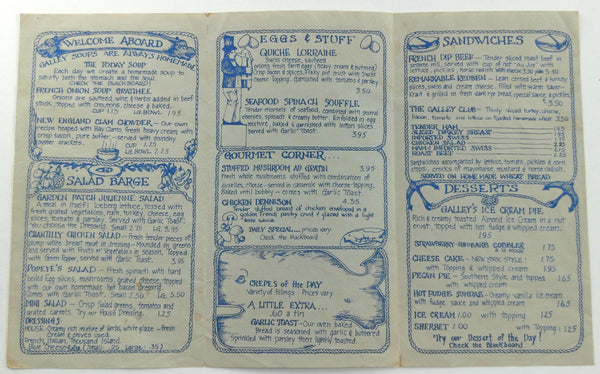 WELCOME ABOARD
GALLEY SOUPS ARE ALWAYS HOMEMADE
THE TODAY SOUP
Each day we create a homemade soup to
satisfy both the stomach and the soul.
CHECK THE BLACKBOARD!
FRENCH ONION SOUP GRATINEE
Onions are sautéed, wine & herbs added in beef
stock, topped with croutons, cheese & baked.
CUP 1.25 LG. BOWL 1.95
NEW ENGLAND CLAM CHOWDER - Our own
recipe heaped with Bay Clams, fresh heavy cream with
crisp bacon, pure butter - served with
oyster crackers.
CUP 1.25
LG. BOWL 1.95
SALAD BARGE
GARDEN PATCH JULIENNE SALAD
A meal in itself! Iceberg lettuce, tossed with
fresh grated vegetables, ham, turkey, cheese, egg
slices, tomato & parsley. Served with Garlic Toast.
You choose the Dressing. Small 2.75 Lg. 3.95
CHANTILLY CHICKEN SALAD - Fresh tender pieces of
plump white breast meat in dressing - Mounded on greens
and served with Fruits or Vegetables in season. Topped
with Green Mayonnaise. Served with Garlic Toast.
3.95
POPEYE'S SALAD - Fresh spinach with hard
boiled Egg slices, mushrooms, grated cheese &
tomatoes, with our own homemade hot bacon dressing.
Comes with Garlic Toast. Small 2.50 Lg. 3.50
MINI SALAD - Crisp Salad greens, tomatoes and
grated carrots. Try our House Dressing. 1.25
DRESSINGS
HOUSE: Creamy rich mixture of herbs, white glaze - fresh
Cream & wines used.
French, Italian, Thousand Island.
Blue Cheese (Small .25 Large .35)
EGGS & STUFF
QUICHE LORRAINE
Swiss cheese, sauteed
onions, fresh farm eggs, heavy cream & nutmeg
Crisp bacon & spices. Flaky pie crust wine Swiss
cheese Topping. Garnished with tomatoes & parsley
3.50
SEAFOOD SPINACH SOUFFLE
Tender morsels of seafood with several cheeses,
spinach & creamy butter. Enfolded in egg
mixture, baked & garnished with lemon slices
Served with Garlic Toast.
3.95
GOURMET CORNER...
STUFFED MUSHROOM AU GRATIN 3.95
Fresh white mushrooms stuffed with combination of
duxelles, cheese - served in casserole with cheese topping.
Baked until bubbly - excess with Garlic Toast.
CHICKEN DENNISON 4.55
Tender stuffed breast of chicken enveloped in a
golden French pastry crust & glazed with a light
Pate sauce.
DAILY SPECIAL - prices vary
Check the Blackboard
CREPES of the DAY
Variety of fillings - Prices vary
A LITTLE EXTRA...
.60 a tin
GARLIC TOAST - Our oven baked
Bread is seasoned with garlic & buttered
Sprinkled with parsley then lightly toasted.
SANDWICHES
FRENCH DIP BEEF - Tender sliced roast beef in
sesame roll, served with cup of hot "Au Jus" with
lettuce, pickles, horse radish. With cheese 3.50 3.40
REMARKABLE REUBEN! - Lean corned beef & turkey
slices, swiss and cream cheese. Filled with warm sauer-
kraut & grilled in fresh caraway seed bread, special sauce.
3.50
THE GALLEY CLUB - Thinly sliced turkey, cheese,
tomato, bacon and lettuce on Toasted homemade wheat 3.50
TENDER HAM
SLICED TURKEY BREAST
IMPORTED SWISS
CHICKEN SALAD
HAM & IMPORTED SWISS
ROAST BEEF
sandwiches accompanied by lettuce, tomato, pickles, chips
crocks of mayonnaise, mustard & horse radish.
SERVED ON HOME MADE WHEAT BREAD
DESSERTS
GALLEY'S ICE CREAM PIE
Rich & creamy toasted Almond Ice Cream in a nut
crust, topped with hot fudge & whipped cream.
1.95
STRAWBERRY-RHUBARB COBBLER
à la mode 1.75
CHEESE CAKE - NEW YORK STYLE! 1.25
with Topping & whipped cream 1.95
PECAN PIE - Southern Style, and topped
with whipped cream. 1.65
HOT FUDGE SUNDAE - Creamy vanilla ice cream
with fudge sauce and whipped cream 1.65
ICE CREAM 1.00 with Topping 1.25
SHERBET 1.00 with Topping 1.25
"Try our Dessert of the Day!
Check the Blackboard